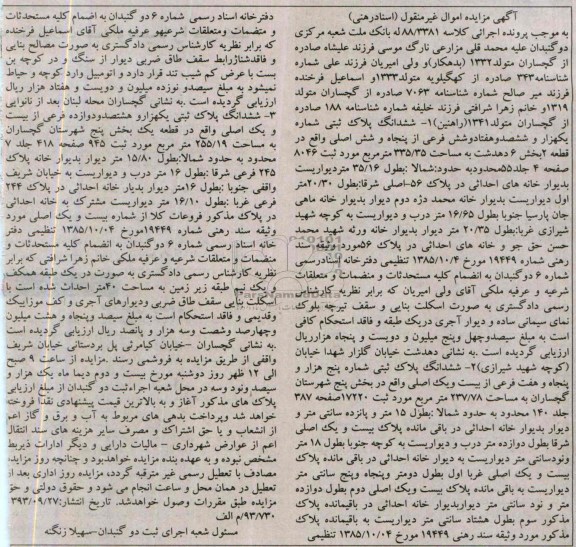 آگهی مزایده اموال غیرمنقول (اسنادرهنی)
به موجب پرونده اجرائی کلاسه ۸۸/۳۳۸۱ له بانک ملت شعبه مرکزی
دوگنبدان علیه محمد قلی مزارعی نارگ موسی فرزند علیشاه صادره
از گچساران متولد۱۳۳۲ (بدهکار)و ولی امیریان فرزند علی شماره
شناسنامه۳۴۳ صادره از کهگیلویه متولد۱۳۳۳و اسماعیل فرخنده
فرزند میر صالح شماره شناسنامه ۷۰۶۳ صادره از گچساران متولد
۱۳۱۹و خانم زهرا شرافتی فرزند خلیفه شماره شناسنامه ۱۸۸ صادره
از گچساران متولد۱۳۴۱(راهنین)۱- ششدانگ پلاک ثبتی شماره
یکهزار و ششصدوهفتادوشش فرعی از پنجاه و شش اصلی واقع در
قطعه ۲بخش ۶ دهدشت به مساحت ۳۳۵/۳۵ مترمربع مورد ثبت ۸۰۴۶
صفحه ۴ جلد۵۵محدودبه حدود:شمالا :بطول ۳۵/۱۶ متردیواریست
بدیوار خانه های احداثی در پلاک ۵۶-اصلی شرقا:بطول ۲۰/۳۰متر
اول دیواریست بدیوار خانه محمد دژه دوم دیوار بدیوار خانه ماهی
جان پارسیا جنوبا بطول ۱۶/۶۵ متر درب و دیواریست به کوچه شهید
شیرازی غربا:بطول ۲۰/۳۵ متر دیوار بدیوار خانه ورثه شهید محمد
حسن حق جو و خانه های احداثی در پلاک ۵۶مورد وثیقه سند
رهنی شماره ۱۹۴۴۹ مورخ ۱۳۸۵/۱۰/۴ تنظیمی دفترخانه اسنادرسمی
شماره ۶ دوگنبدان به انضمام کلیه مستحدثات و منضمات و متعلقات
شرعیه و عرفیه ملکی آقای ولی امیریان که برابر نظریه کارشناس
رسمی دادگستری به صورت اسکلت بنایی و سقف تیرچه بلوک
نمای سیمانی ساده و دیوار آجری دریک طبقه و فاقد استحکام کافی
است به مبلغ سیصدوچهل وپنج میلیون و دویست و پنجاه هزارریال
ارزیابی گردیده است .به نشانی دهدشت خیابان گلزار شهدا خیابان
(کوچه شهید شیرازی)۲- ششدانگ پلاک ثبتی شماره پنج هزار و
پنجاه و هفت فرعی از بیست ویک اصلی واقع در بخش پنج شهرستان
گچساران به مساحت ۲۳۷/۷۸ متر مربع مورد ثبت ۱۷۲۲۰صفحه ۳۸۷
جلد ۱۴۰ محدود به حدود شمالا :بطول ۱۵ متر و پانزده سانتی متر و
دیوار بدیوار خانه احداثی در باقی مانده پلاک بیست و یک اصلی
شرقا بطول دوازده متر درب و دیواریست به کوچه جنوبا بطول ۱۸ متر
ونودسانتی متر دیواریست به دیوار خانه احداثی در باقی مانده پلاک
بیست و یک اصلی غربا اول بطول دومتر وپنجاه وپنج سانتی متر
دیواریست به باقی مانده پلاک بیست ویک اصلی دوم بطول دوازده
متر و نود سانتی متر دیواربدیوار خانه احداثی در باقیمانده پلاک
مذکور سوم بطول هشتاد سانتی متر دیواریست به باقیمانده پلاک
مذکور مورد وثیقه سند رهنی ۱۹۴۴۹ مورخ ۱۳۸۵/۱۰/۰۴ تنظیمی
دفترخانه اسناد رسمی شماره ۶ دو گنبدان به انضمام کلیه مستحدثات
و متضمات و متعلقات شرعیهو عرفیه ملکی آقای اسماعیل فرخنده
که برابر نظریه کارشناس رسمی دادگستری به صورت مصالح بنایی
و فاقدشناژرابط سقف طاق ضربی دیوار از سنگ و در کوچه بن
بست با عرض کم شیب تند قرار دارد و اتومبیل وارد کوچه و حیاط
نمیشود به مبلغ سیصدو نوزده میلیون و دویست و هفتاد هزار ریال
ارزیابی گردیده است .به نشانی گچساران محله لبنان بعد از نانوایی
۳- ششدانگ پلاک ثبتی یکهزارو هشتصدودوازده فرعی از بیست
و یک اصلی واقع در قطعه یک بخش پنج شهرستان گچساران
به مساحت ۲۵۵/۱۹ متر مربع مورد ثبت ۹۴۵ صفحه ۴۱۸ جلد ۷
محدود به حدود شمالا:بطول ۱۵/۸۰ متر دیوار بدیوار خانه پلاک
۲۴۵ فرعی شرقا :بطول ۱۶ متر درب و دیواریست به خیابان شریف
واقفی جنوبا :بطول ۱۶متر دیوار بدیار خانه احداثی در پلاک ۲۴۴
فرعی غربا :بطول ۱۶/۱۰ متر دیواریست مشترک به خانه احداثی
در پلاک مذکور فروعات کلا از شماره بیست و یک اصلی مورد
وثیقه سند رهنی شماره ۱۹۴۴۹مورخ ۱۳۸۵/۱۰/۰۴ تنظیمی دفتر
خانه اسناد رسمی شماره ۶ دوگنبدان به انضمام کلیه مستحدثات و
منضمات و متعلقات شرعیه و عرفیه ملکی خانم زهرا شرافتی که برابر
نظریه کارشناس رسمی دادگستری به صورت در یک طبقه همکف
و یک نیم طبقه زیر زمین به مساحت ۴۰متر احداث شده است با
اسکلت بنایی سقف طاق ضربی ودیوارهای آجری و کف موزاییک
وقدیمی و فاقد استحکام است به مبلغ سیصد وپنجاه و هشت میلیون
وچهارصد وشصت وسه هزار و پانصد ریال ارزیابی گردیده است
.به نشانی گچساران –خیابان کیامرثی پل بردستانی خیابان شریف
واقفی از طریق مزایده به فروشمی رسند .مزایده از ساعت ۹ صبح
الی ۱۲ ظهر روز دوشنبه مورخ بیست و دوم دیما ماه یک هزار و
سیصد ونود وسه در محل شعبه اجراءثبت دو گنبدان از مبلغ ارزیابی
پلاک های مذکور آغاز و به بالاترین قیمت پیشنهادی نقدا فروخته
خواهد شد وپرداخت بدهی های مربوط به آب و برق و گاز اعم
از انشعاب و یا حق اشتراک و مصرف سایر هزینه های سند انتقال
اعم از عوارض شهرداری – مالیات دارایی و دیگر ادارات ذیربط
مشخص نبوده و به عهده بنده مزایده خواهدبود و چنانچه روز مزایده
مصادف با تعطیل رسمی غیر مترقبه گردد، مزایده روز اداری بعد از
تعطیل در همان محل و ساعت انجام می شود و حقوق دولتی و حق
مزایده طبق مقررات وصول خواهدشد. تاریخ انتشار:۳۹۳/۰۹/۲۷
۹۳/۷۳۰/م الف
مسئول شعبه اجرای ثبت دو گنبدان–سهیلا زنگنه